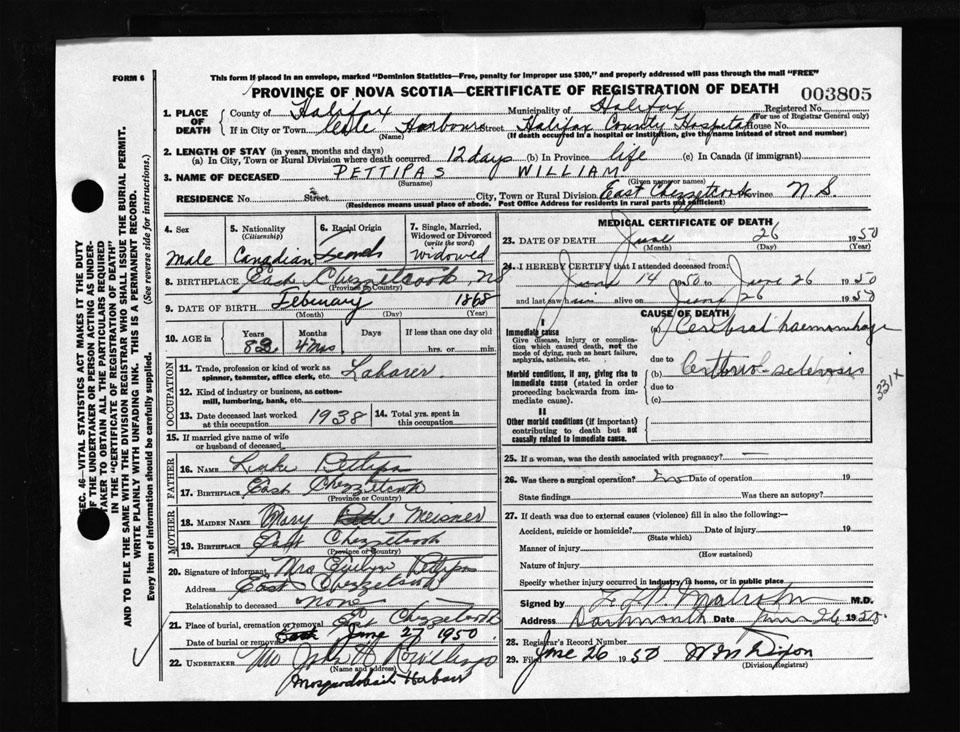 FORM 6
This form if placed in an envelope, marked "Dominion Statistics—Free, penalty for improper use $300," and properly addressed will pass through the mail "FREE"
PROVINCE OF NOVA SCOTIA—CERTIFICATE OF REGISTRATION OF DEATH
003805
1. PLACE OF DEATH
County of Halifax Municipality of Halifax Registered No.
(For use of Registrar General only)
If in City or Town Cole Harbour Street Halifax County Hospital House No.
(Name) (If death occurred in a hospital or institution, give the name instead of street and number)
2. LENGTH OF STAY (in years, months and days)
(a) In City, Town or Rural Division where death occurred 12 days (b) In Province life (c) In Canada (if immigrant)
3. NAME OF DECEASED PETTIPAS WILLIAM
(Surname) (Given name or names)
RESIDENCE No. Street City, Town or Rural Division East Chezzetcook Province N.S.
(Residence means usual place of abode. Post Office Address for residents in rural parts not sufficient)
4. Sex
Male
5. Nationality
(Citizenship)
Canadian
6. Racial Origin
French
7. Single, Married, Widowed or Divorced
(write the word)
widowed
8. BIRTHPLACE East Chezzetcook, NS
(Province or Country)
9. DATE OF BIRTH Febuary 1868
(Month) (Day) (Year)
10. AGE in
Years Months Days If less than one day old
82 4 Mos hrs. or min.
OCCUPATION
11. Trade, profession or kind of work as spinner, teamster, office clerk, etc. Laborer
12. Kind of industry or business, as cotton-mill, lumbering, bank, etc.
13. Date deceased last worked at this occupation 1938
14. Total yrs. spent in this occupation
15. If married give name of wife or husband of deceased
FATHER
16. NAME Luke Pettipas
17. BIRTHPLACE East Chezzetcook
(Province or Country)
MOTHER
18. MAIDEN NAME Mary Meisner
19. BIRTHPLACE East Chezzetcook
(Province or Country)
20. Signature of informant Mrs Evelyn Pettipas
Address East Chezzetcook
Relationship to deceased None
21. Place of burial, cremation or removal East Chezzetcook
Date of burial or removal June 27 1950
22. UNDERTAKER
(Name and address)
Harbour
MEDICAL CERTIFICATE OF DEATH
23. DATE OF DEATH June 26 1950
(Month) (Day) (Year)
24. I HEREBY CERTIFY that I attended deceased from:
June 14 1950 to June 26 1950
and last saw him alive on June 26 1950
CAUSE OF DEATH
I
Immediate cause
Give disease, injury or complication which caused death, not the mode of dying, such as heart failure, asphyxia, asthenia, etc.
(a) Cerebral haemorrhage
due to
Morbid conditions, if any, giving rise to immediate cause (stated in order proceeding backwards from immediate cause).
(b) Arterio-sclerosis
due to
(c)
331X
II
Other morbid conditions (if important) contributing to death but not causally related to immediate cause.
25. If a woman, was the death associated with pregnancy? —
26. Was there a surgical operation? No Date of operation 19
State findings Was there an autopsy?
27. If death was due to external causes (violence) fill in also the following:—
Accident, suicide or homicide? Date of injury 19
(State which)
Manner of injury
(How sustained)
Nature of injury
Specify whether injury occurred in industry, in home, or in public place
Signed by M.D.
Address Dartmouth Date June 26 1950.
28. Registrar's Record Number
29. Filed June 26 1950 Dixon
(Division Registrar)
SEC. 46—VITAL STATISTICS ACT MAKES IT THE DUTY
OF THE UNDERTAKER OR PERSON ACTING AS UNDER-
TAKER TO OBTAIN ALL THE PARTICULARS REQUIRED
IN THE "CERTIFICATE OF REGISTRATION OF DEATH"
AND TO FILE THE SAME WITH THE DIVISION REGISTRAR WHO SHALL ISSUE THE BURIAL PERMIT.
WRITE PLAINLY WITH UNFADING INK. THIS IS A PERMANENT RECORD.
Every item of information should be carefully supplied. (See reverse side for instructions.)